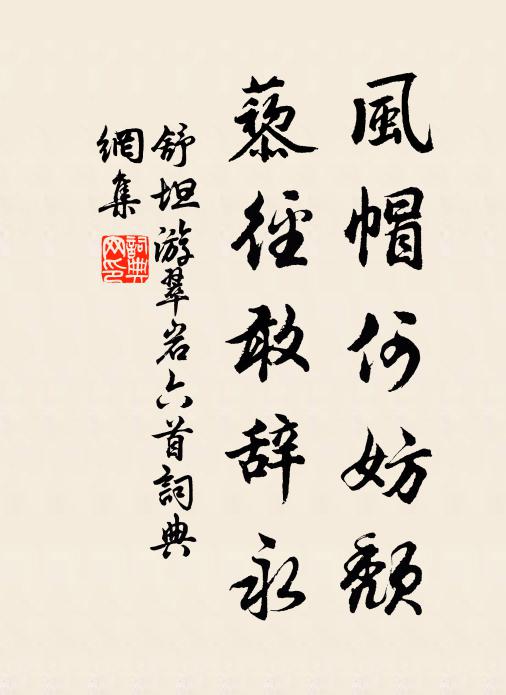 風帽何妨頹
藜徑敢辞永
舒坦游翠岩六首詞典
網集
詞典
网印